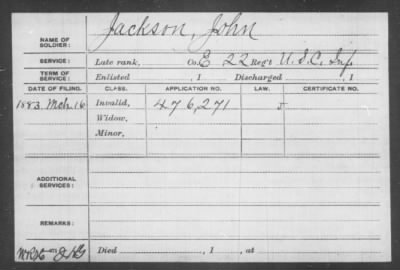 Jackson, John
NAME OF
SOLDIER:
SERVICE: Late rank, Co. E 22 Reg't U.S.C. Inf.
TERM OF
SERVICE: Enlisted , 1 Discharged , 1
DATE OF FILING. CLASS. APPLICATION NO. LAW. CERTIFICATE NO.
1883 Mch. 16 Invalid, 476,271
Widow,
Minor,
ADDITIONAL
SERVICES:
REMARKS:
Died , 1 , at